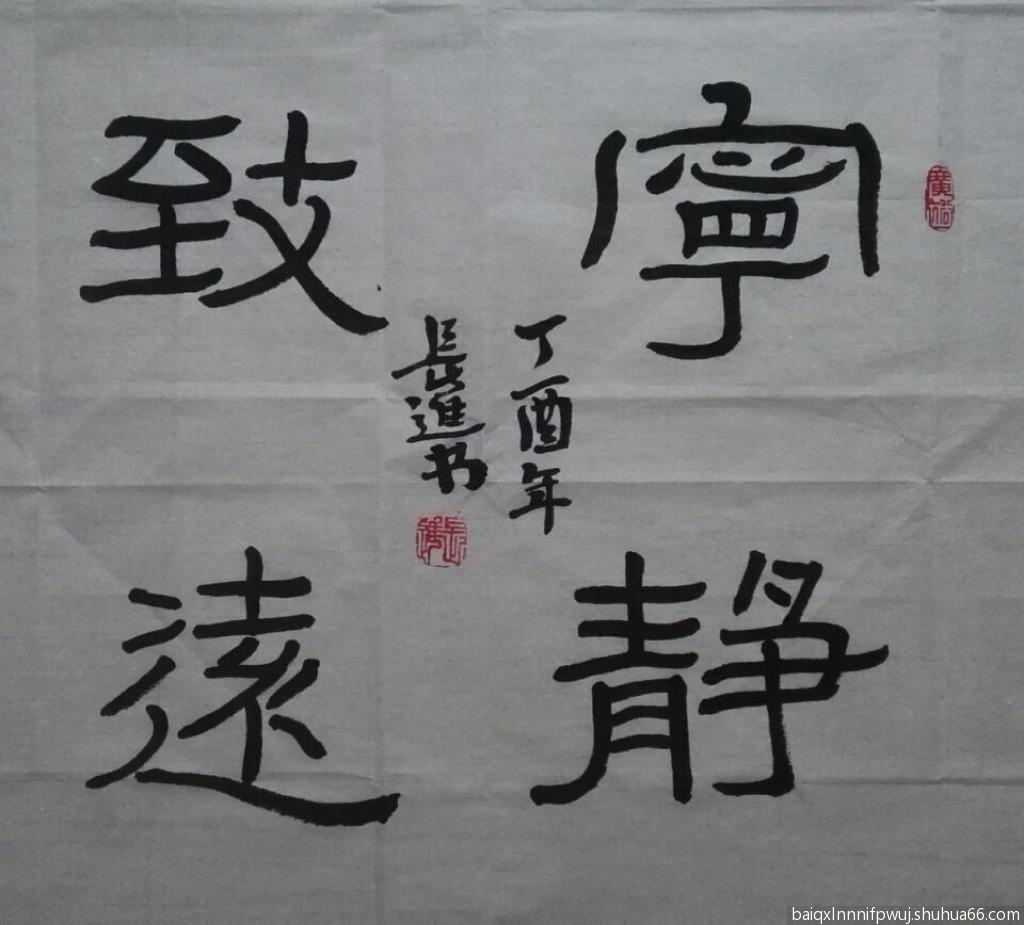 寧靜
致遠
丁酉年
長進书
baiqxlnnnifpwuj.shuhua66.com